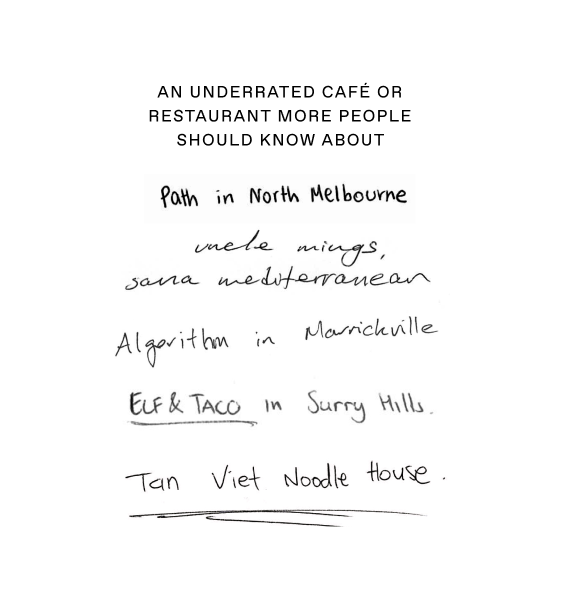 AN UNDERRATED CAFÉ OR
RESTAURANT MORE PEOPLE
SHOULD KNOW ABOUT
Path in North Melbourne
uncle mings,
sana mediterranean
Algorithm in Marrickville
ELF & TACO in Surry Hills.
Tan Viet Noodle House.